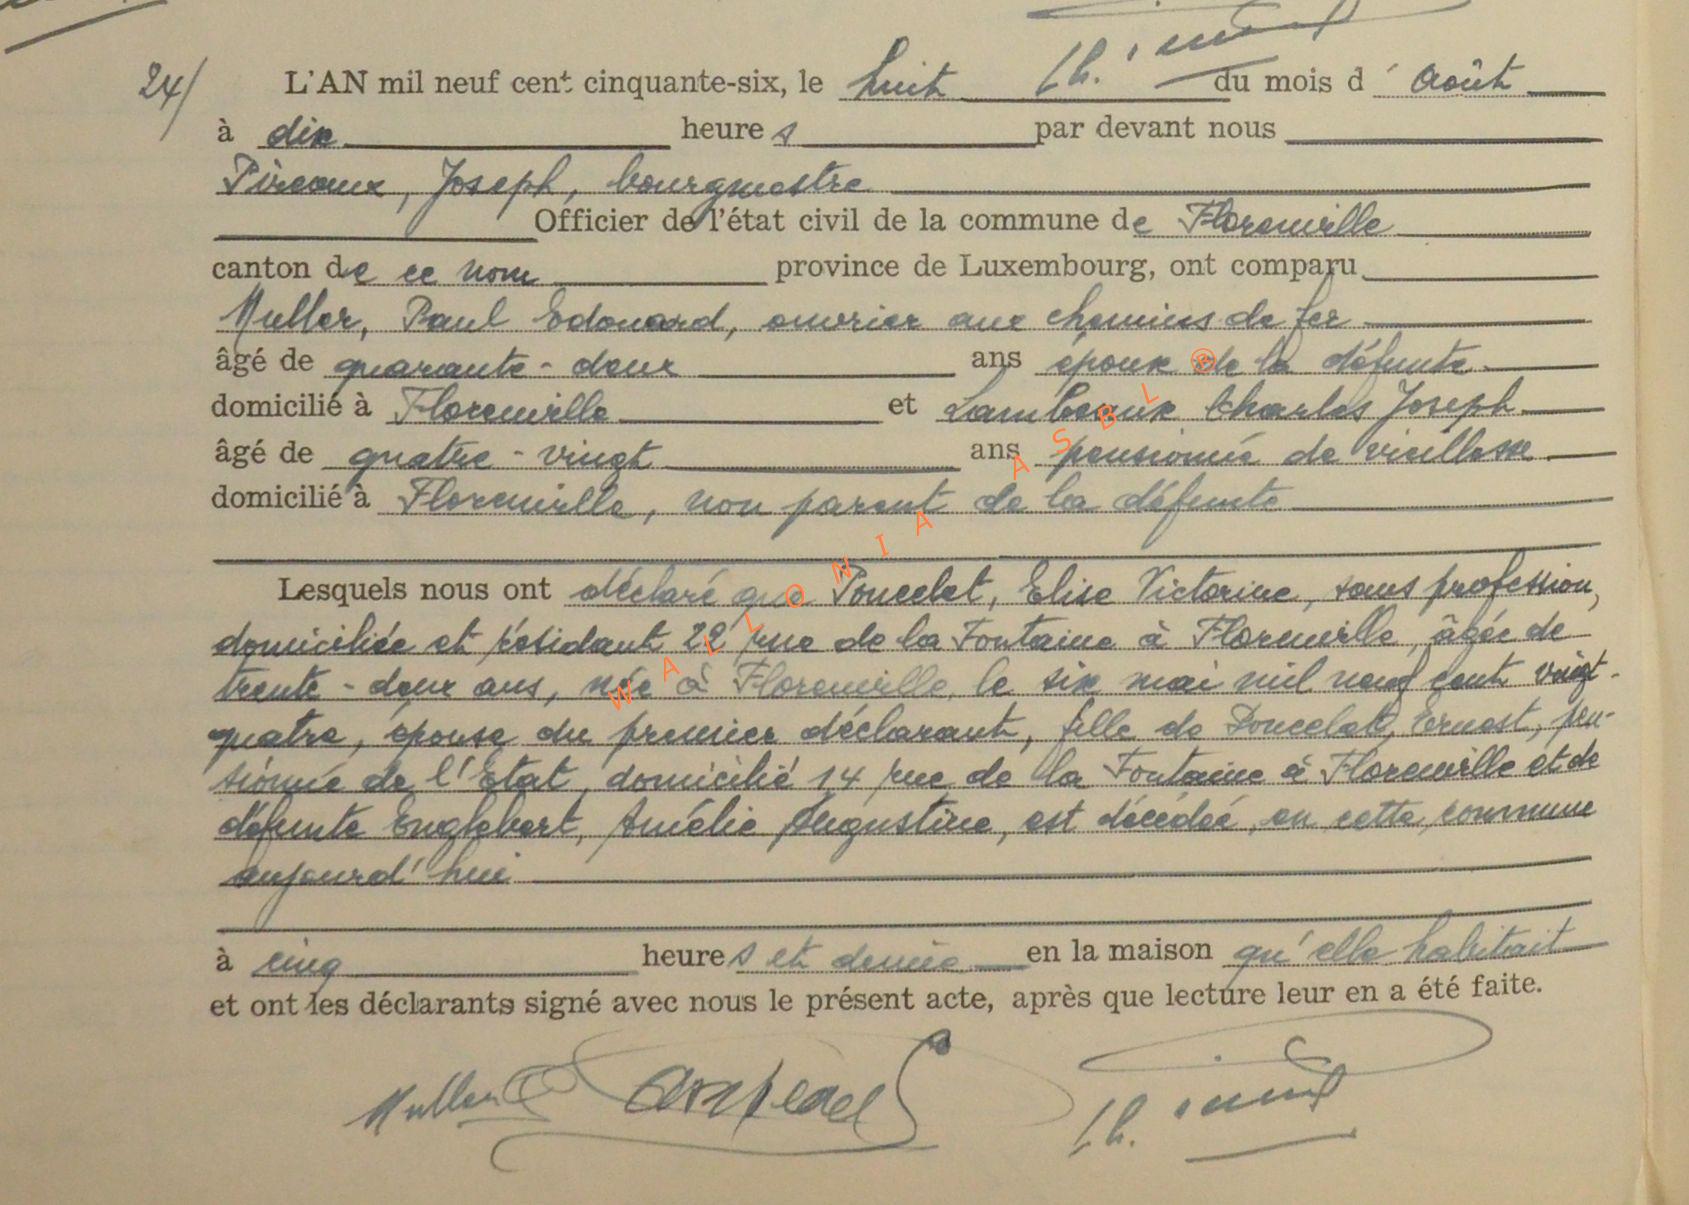 24/ L'AN mil neuf cent cinquante-six, le huit du mois d' Août
à dix heures par devant nous
Pireaux, Joseph, bourgmestre
Officier de l'état civil de la commune de Florenville
canton de ce nom province de Luxembourg, ont comparu
Muller, Paul Edouard, ouvrier aux chemins de fer
âgé de quarante-deux ans époux de la défunte
domicilié à Florenville et Lambeaux Charles Joseph
âgé de quatre-vingt ans pensionné de vieillesse
domicilié à Florenville, non parent de la défunte
Lesquels nous ont déclaré que Poncelet, Elise Victorine, sans profession,
domiciliée et résidant 22 rue de la Fontaine à Florenville, âgée de
trente-deux ans, née à Florenville, le six mai mil neuf cent vingt-
quatre, épouse du premier déclarant, fille de Poncelet, Ernest, pen-
sionné de l'Etat, domicilié 14 rue de la Fontaine à Florenville et de
défunte Englebert, Amélie Augustine, est décédée, en cette commune
aujourd'hui
à cinq heures et demie en la maison qu'elle habitait
et ont les déclarants signé avec nous le présent acte, après que lecture leur en a été faite.
Muller
WALLONIA ASBL ®